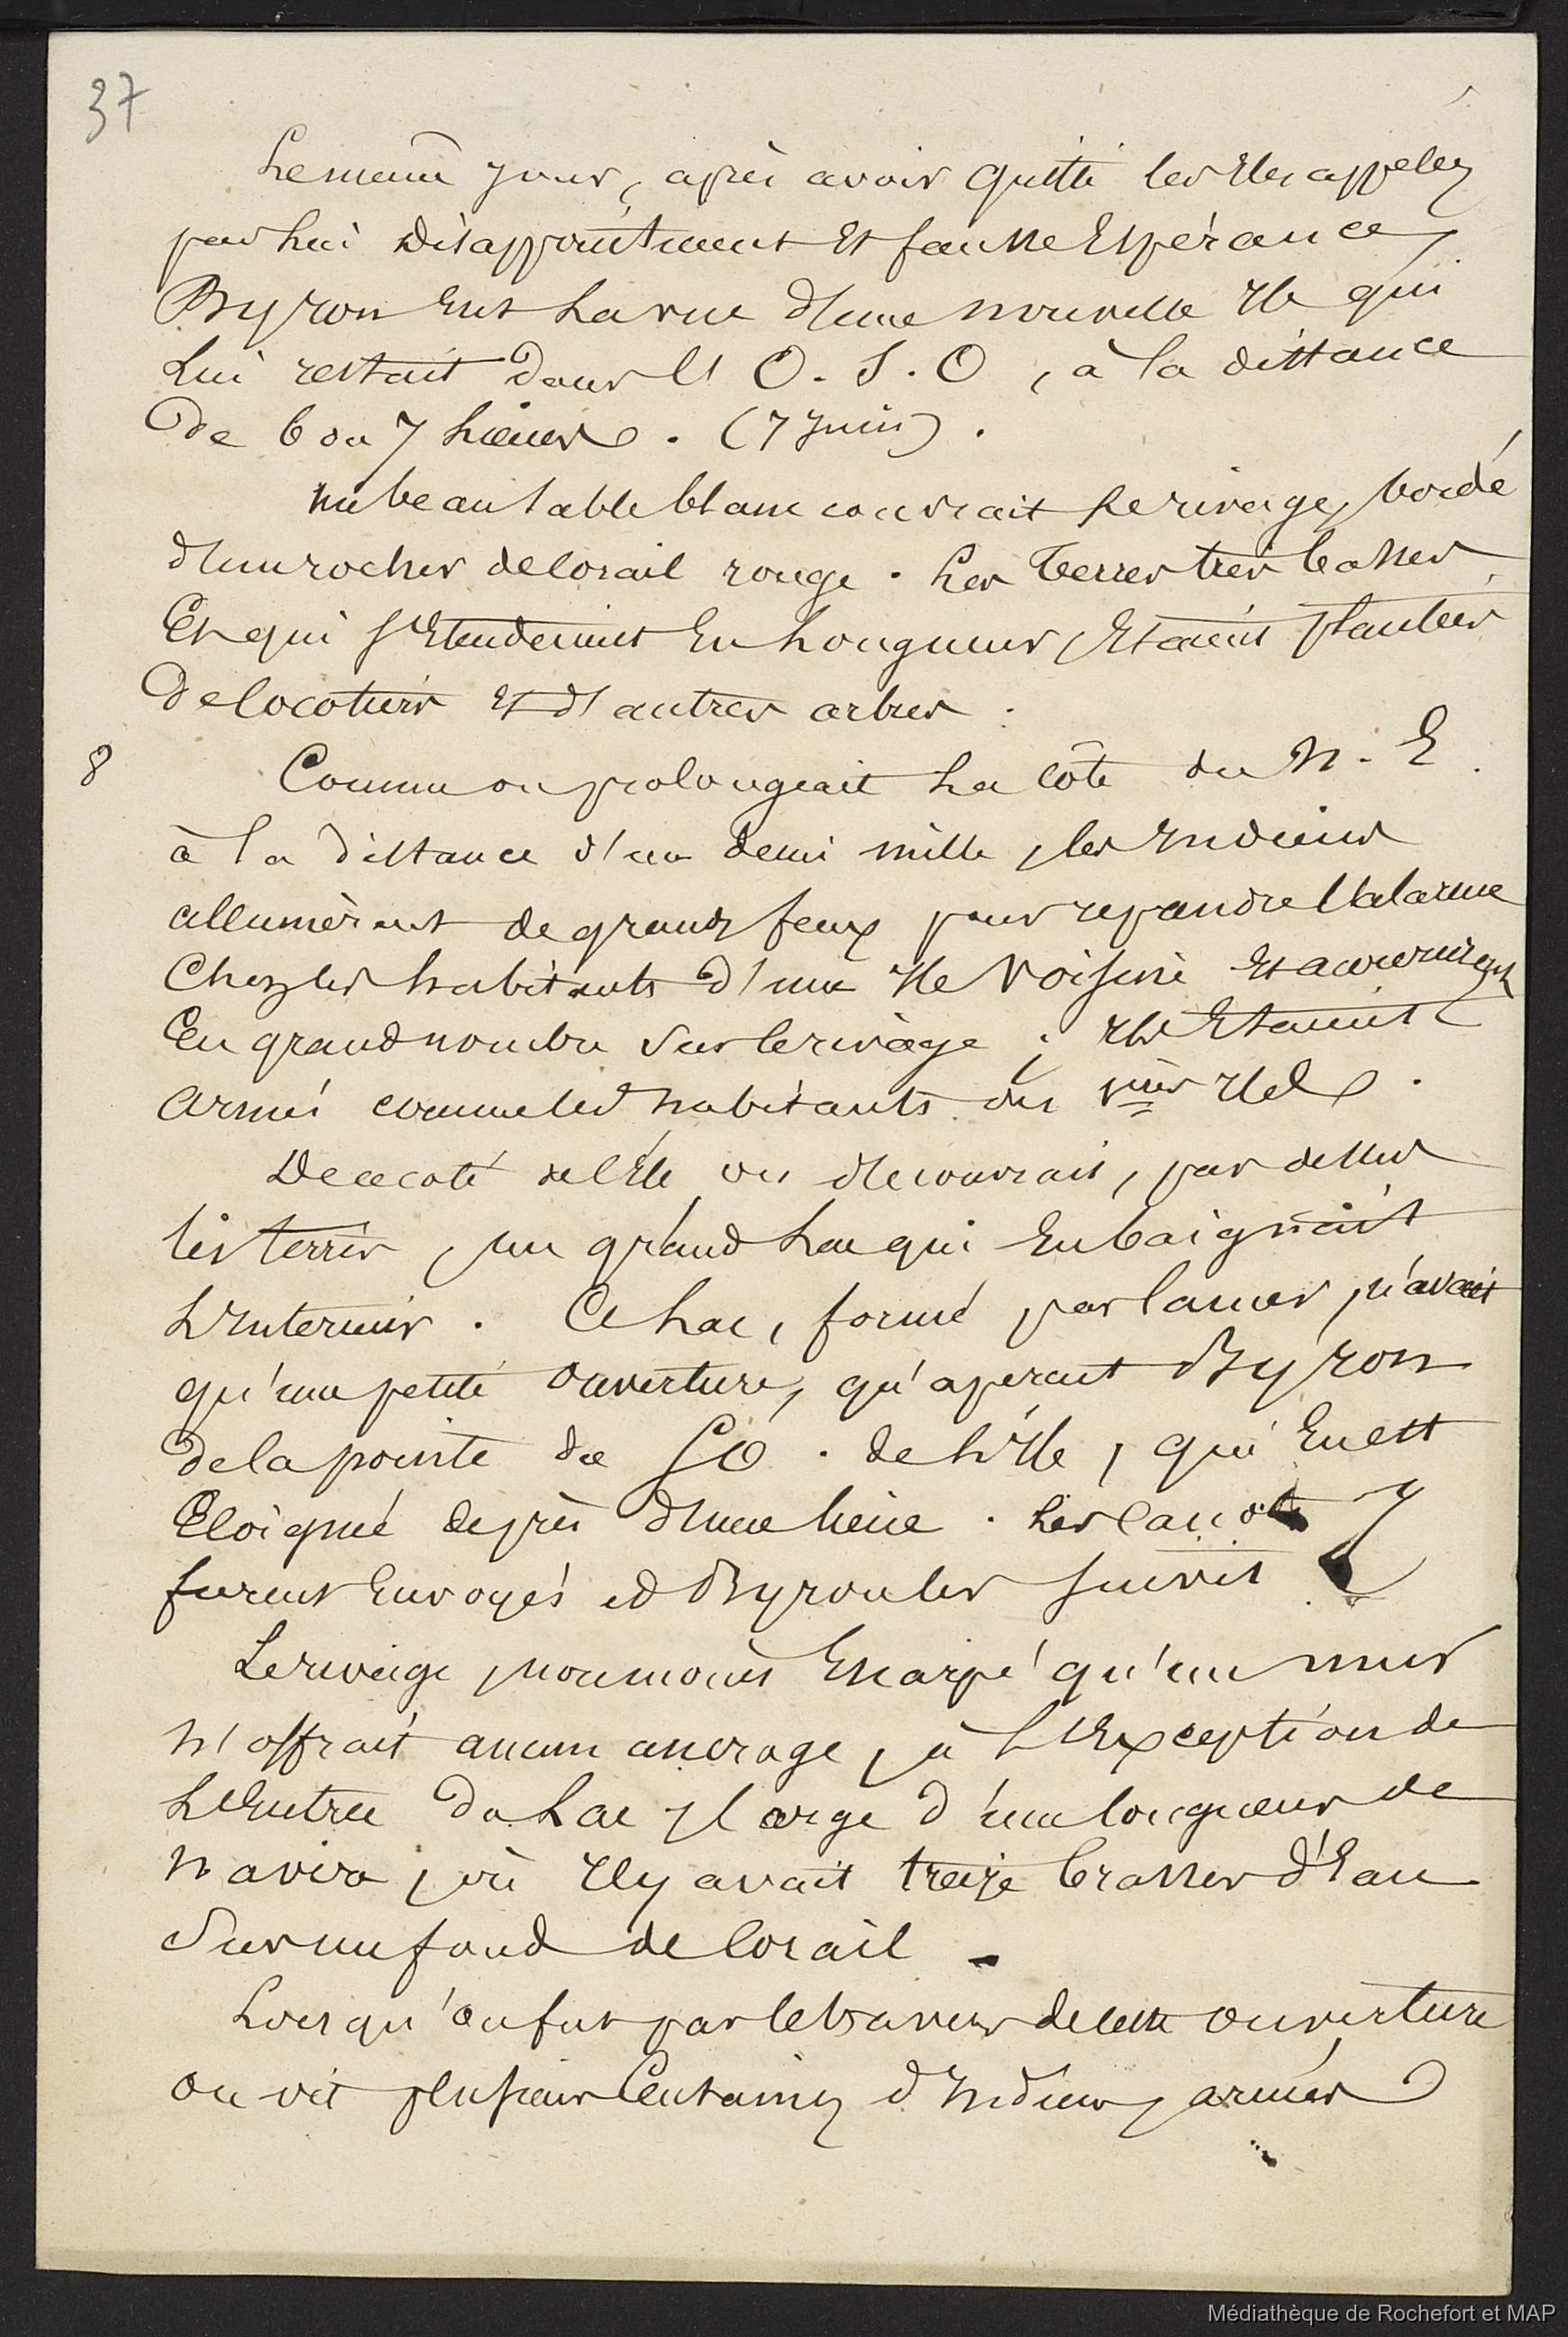 37
Le même jour, après avoir quitté les Iles appelez
par lui Désappointement Et fausse Espérance,
Byron eut la vue d'une nouvelle Ile qui
Lui restait dans l'O. S. O, à la distance
De 6 ou 7 lieues. (7 Juin).
Un beau sable blanc couvrait le rivage, bordé
d'un rocher de Corail rouge. Les Terres très basses
Et qui s'Etendaient En Longueur, Etaient plantées
De Cocotiers Et d'autres arbres.
8
Comme on prolongeait La Côte du N. E.
à la distance d'un demi mille, les Indiens
allumèrent de grands feux pour repandre l'alarme
Chez les habitants d'une Ile Voisine Et accoururent
En grand nombre sur le rivage ; Ils Etaient
armés comme les habitants des 1ères Iles.
De ce coté de l'Ile on découvrait, par dessus
les terres, un grand Lac qui En baignait
L'Interieur. Ce Lac, formé par la mer, n'avait
qu'une petite Ouverture, qu'aperçut Byron
de la pointe du SO. de L'Ile, qui En est
Eloigné de près d'une lieue. Les Canots
furent Envoyés et Byron les suivit
Le rivage, non moins Escarpé qu'un mur
N'offrait aucun ancrage, à L'Exception de
L'Entrée du Lac, large d'une longueur de
Navire, où Il y avait treize brasses d'Eau
Sur un fond de Corail.
Lorsqu'on fut par le travers de cette Ouverture
on vit plusieurs Centaines d'Indiens, armés
Médiathèque de Rochefort et MAP